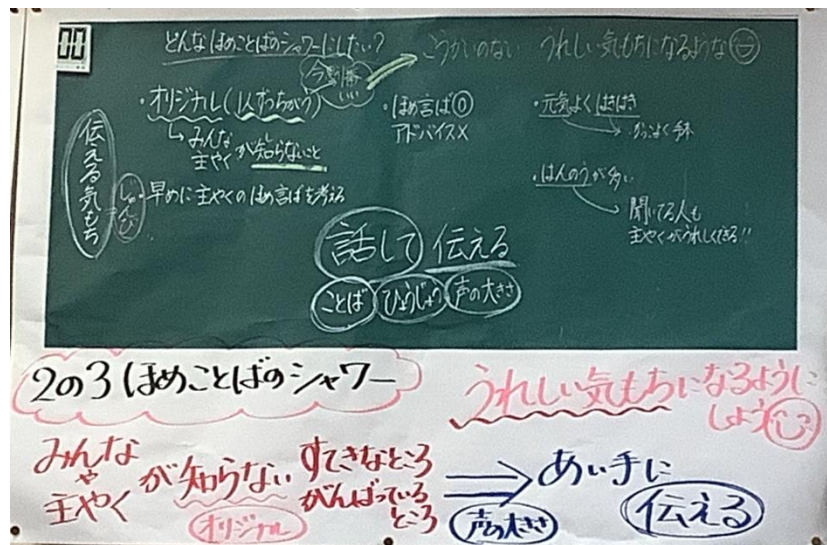 どんなほめことばのシャワーにしたい?
こうかいのない うれしい気もちになるような
・オリジナル(1人ずつちがう)
↳みんな
主やく が知らないこと
しゅんび
・早めに主やくのほめ言ばを考える
伝える気もち
・ほめ言ば○
アドバイス×
・元気よくはきはき
かっこよく
・はんのうが多い
聞いてる人も
主やくがうれしくなる!!
話して 伝える
ことば ひょうじょう 声の大きさ
2の3ほめことばのシャワー
うれしい気もちになるように
しよう
みんな
や
主やく
が知らない
すてきなところ
がんばっている
ところ
オリジナル
⇒
声の大きさ
あい手に
伝える